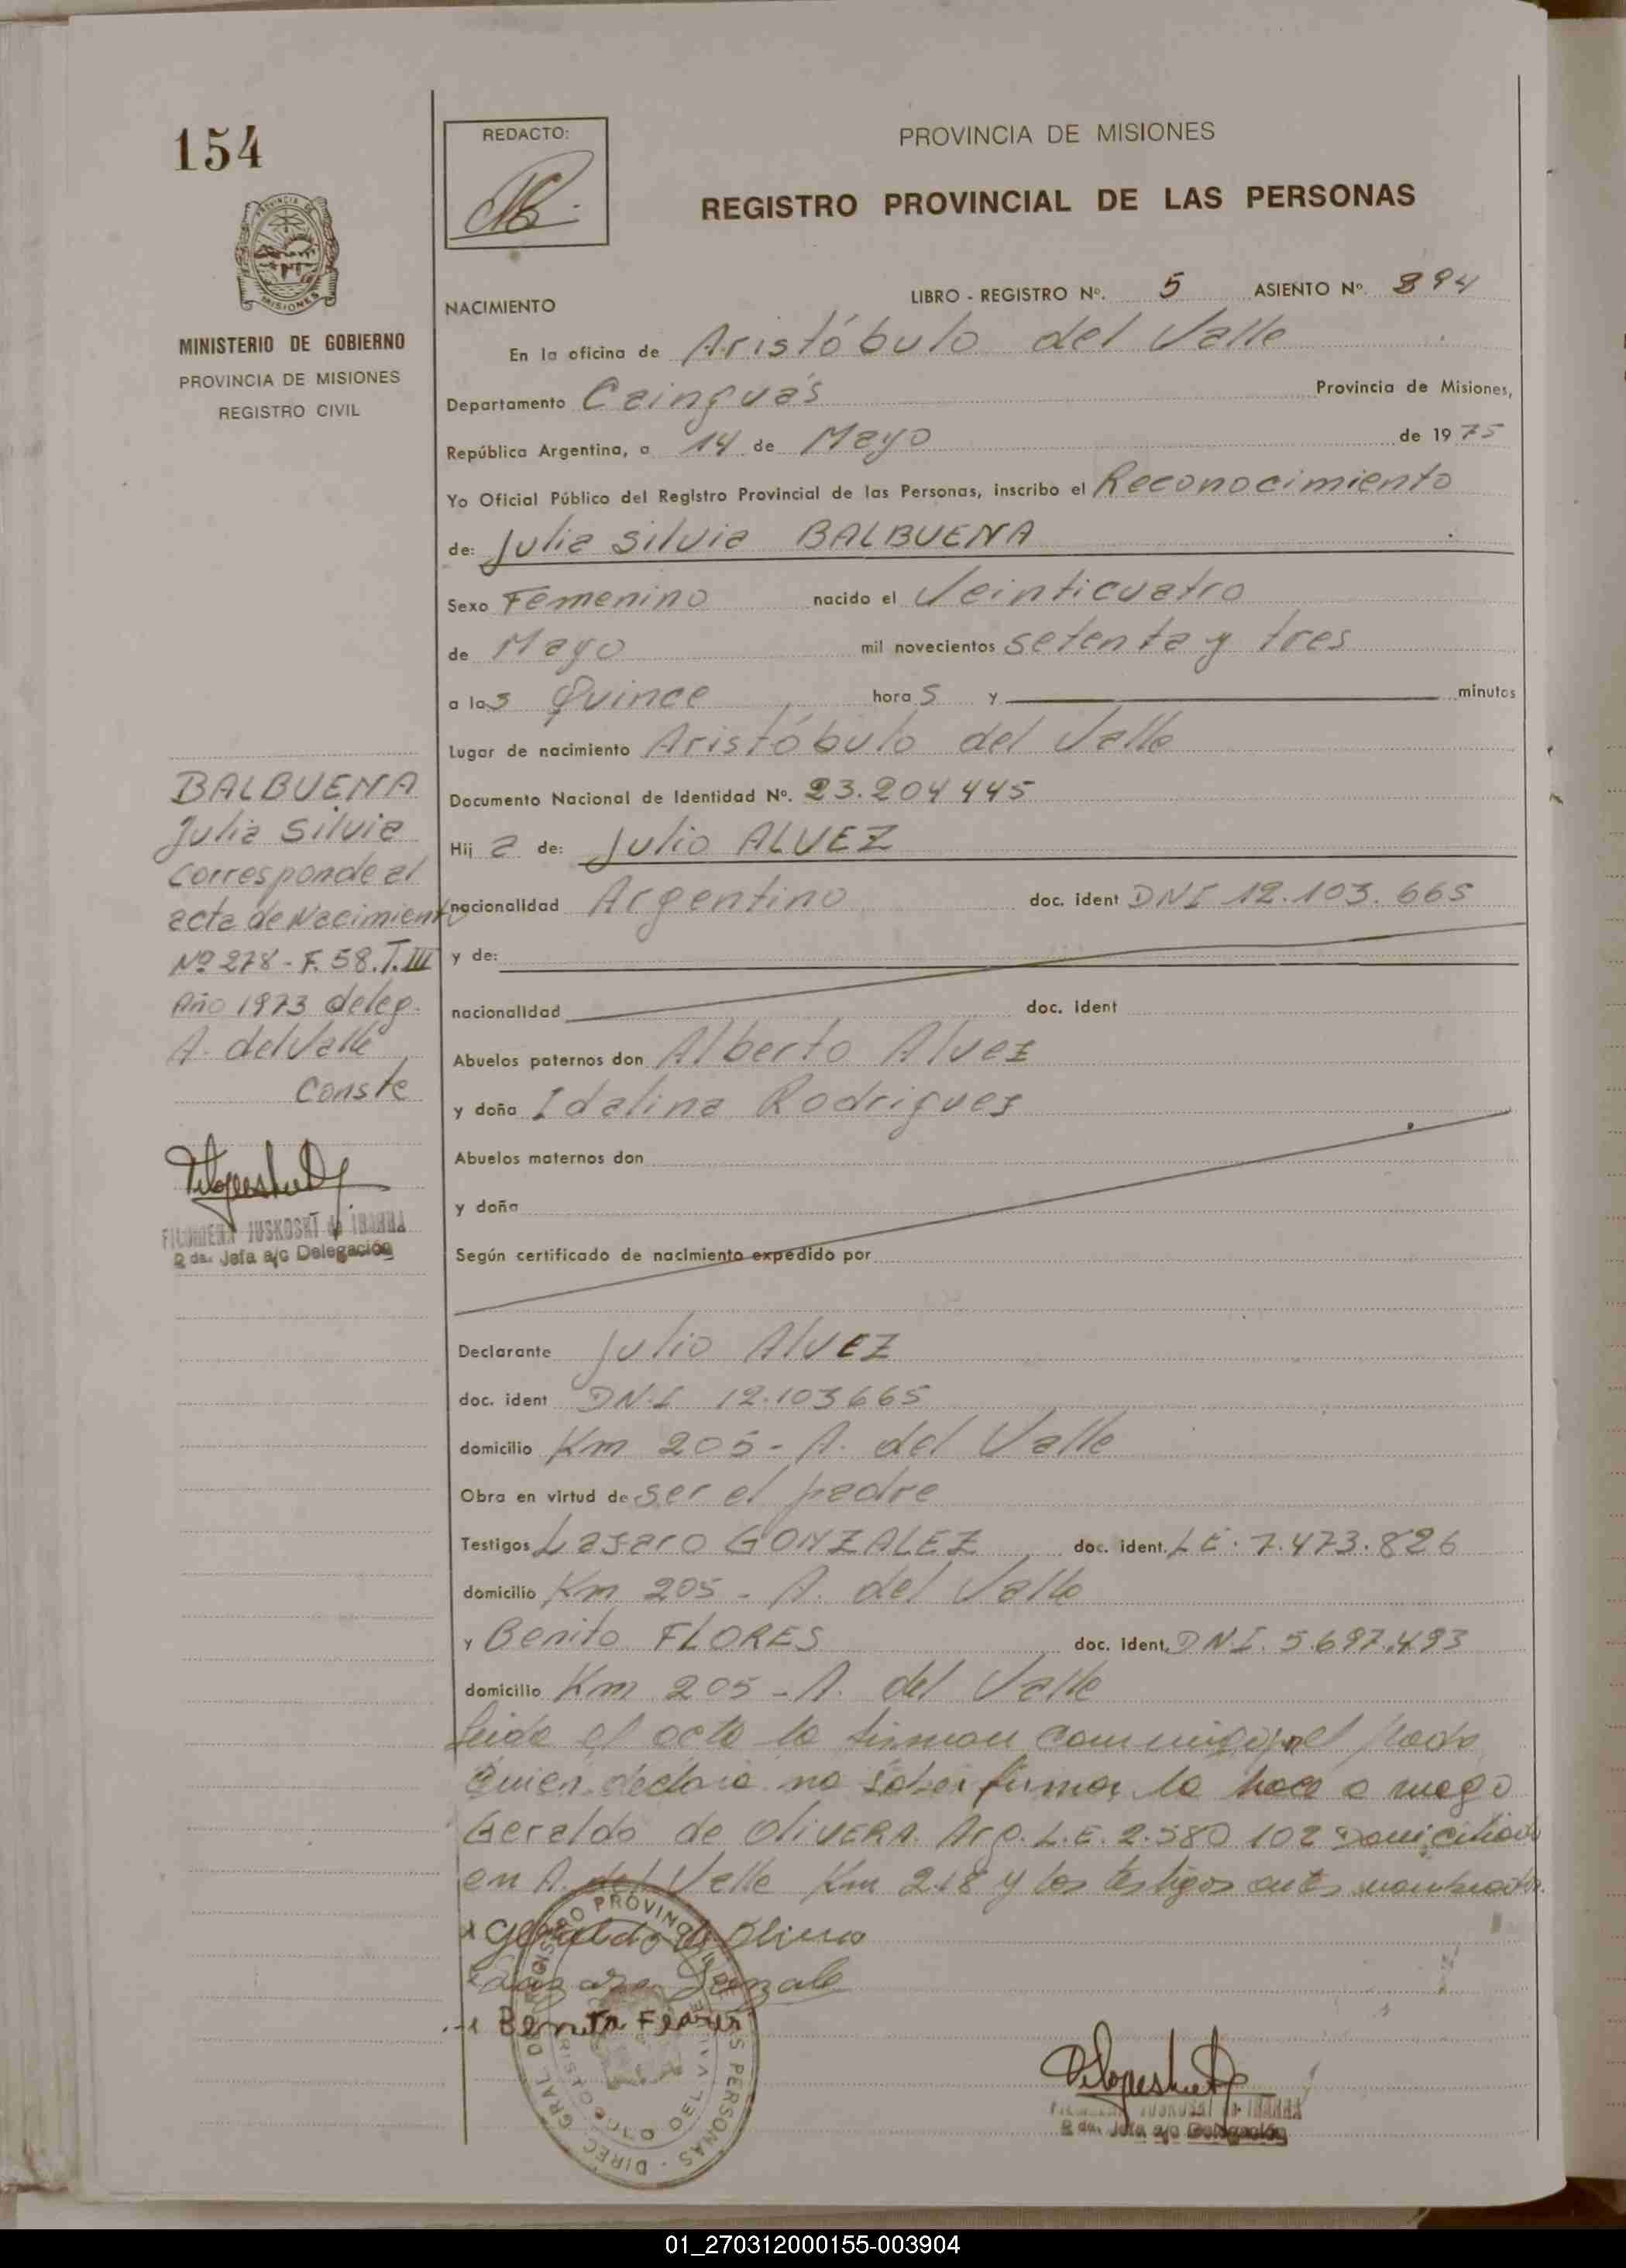 154
REDACTO:
PROVINCIA DE MISIONES
REGISTRO PROVINCIAL DE LAS PERSONAS
MISIONES
MINISTERIO DE GOBIERNO
PROVINCIA DE MISIONES
REGISTRO CIVIL
LIBRO - REGISTRO Nº. 5 ASIENTO Nº. 394
NACIMIENTO
En la oficina de Aristóbulo del Valle
Departamento Cainguás Provincia de Misiones,
República Argentina, a 14 de Mayo de 1975
Yo Oficial Público del Registro Provincial de las Personas, inscribo el Reconocimiento
de: Julia Silvia BALBUENA
Sexo Femenino nacido el Veinticuatro
de Mayo mil novecientos setenta y tres
a las Quince horas y minutos
Lugar de nacimiento Aristóbulo del Valle
Documento Nacional de Identidad Nº. 23.204445
Hija de: Julio ALVEZ
nacionalidad Argentino doc. ident DNI 12.103.665
y de:
nacionalidad doc. ident
Abuelos paternos don Alberto Alvez
y doña Idalina Rodrigues
Abuelos maternos don
y doña
Según certificado de nacimiento expedido por
Declarante Julio AlvEZ
doc. ident DN.I 12.103665
domicilio Km 205 - A. del Valle
Obra en virtud de ser el padre
Testigos Lasaro GONZALEZ doc. ident. LE. 7.473.826
domicilio Km 205 - A. del Valle
y Benito FLORES doc. ident. DNI. 5.697.493
domicilio Km 205 - A. del Valle
Leida el acta la firman conmigo, el padre
quien declara no saber firmar lo hace a ruego
Geraldo de OlivERA. Arg. L.E. 2.580 102 Domiciliado
en A. del Valle Km 218 y los testigos antes nombrados.
BALBUENA
Julia Silvia
Corresponde al
acta de Nacimiento
Nº 278 - F. 58. T. III
Año 1973 deleg.
A. del Valle
Conste
FILOMENA JUSKOSKI de IBARRA
2 da. Jefa a/c Delegación
Benito Flores
FILOMENA JUSKOSKI de IBARRA
2 da. Jefa a/c Delegación
01_270312000155-003904